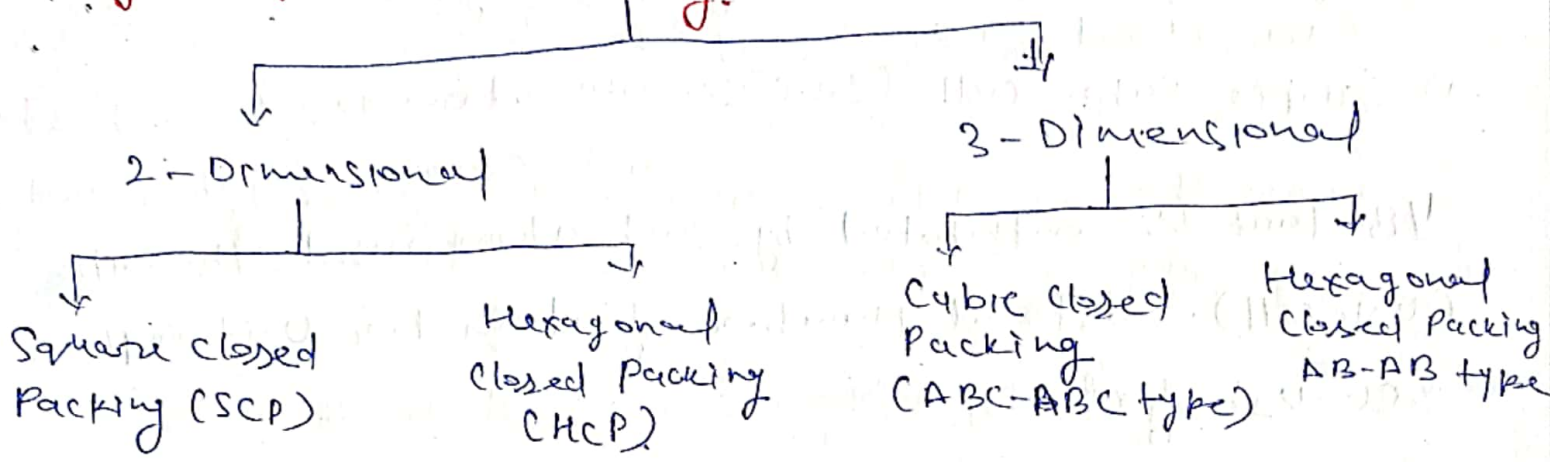 2-Dimensional
3-Dimensional
Square closed
Packing (SCP)
Hexagonal
Closed Packing
(HCP)
Cubic Closed
Packing
(ABC-ABC type)
Hexagonal
Closed Packing
AB-AB type